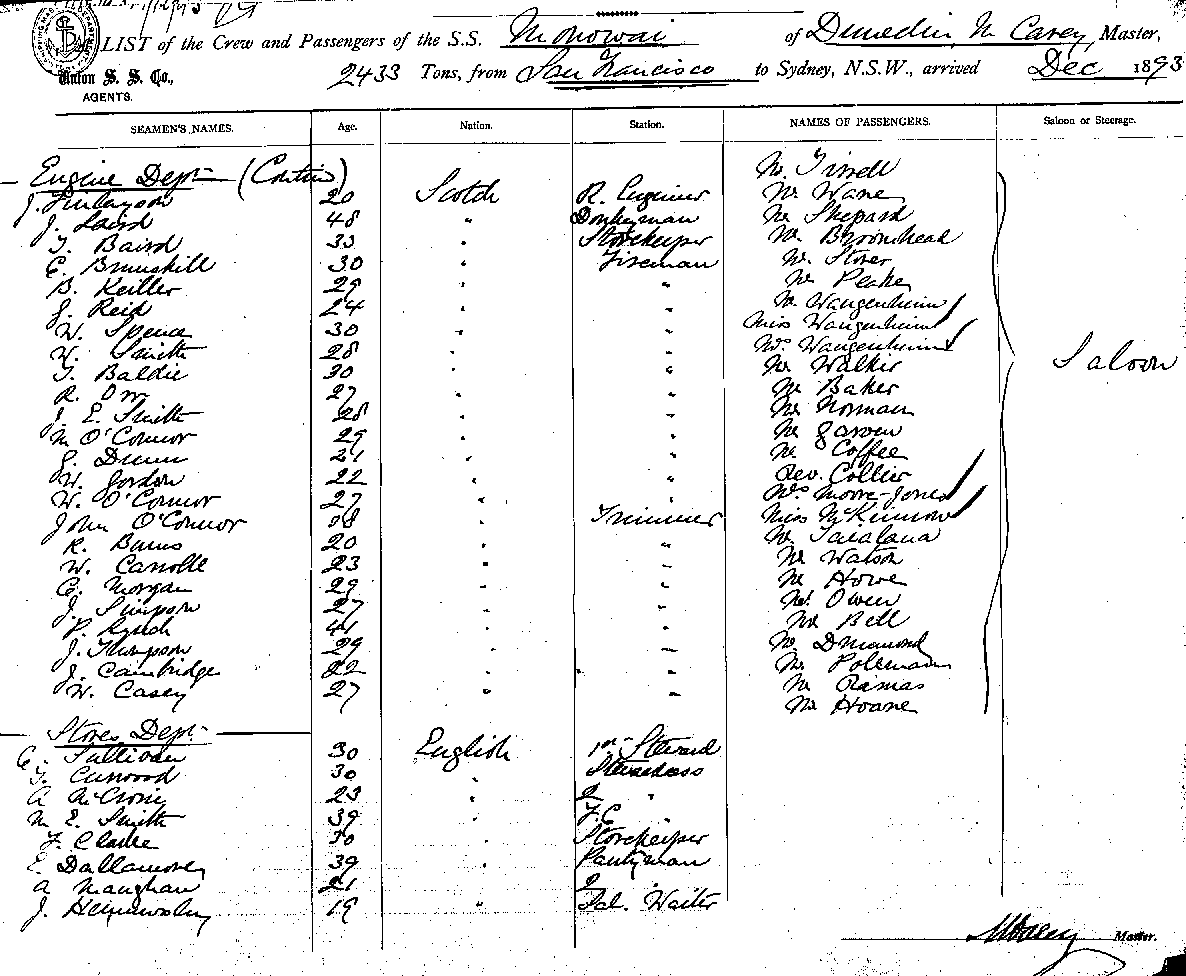 LIST of the Crew and Passengers of the S.S. Monowai of Dunedin, M Carey, Master,
Union S. S. Co., AGENTS.
2433 Tons, from San Francisco to Sydney, N.S.W., arrived Dec 1893
SEAMEN'S NAMES. Age. Nation. Station. NAMES OF PASSENGERS. Saloon or Steerage.
Engine Dept (Contin)
J. Finlayson 20 Scotch R. Engineer
J. Laird 48 " Donkeyman
T. Baird 33 " Storekeeper
C. Brunskill 30 " Fireman
B. Keiller 29 " "
J. Reid 24 " "
W. Spence 30 " "
W. Smith 28 " "
T. Baldie 30 " "
R. Orr 27 " "
J. E. Smith 28 " "
M O'Connor 29 " "
Dunn " "
W. Gordon 22 " "
W. O'Connor 27 " "
John O'Connor " Trimmer
R. Burns 20 " "
W. Carrolle 23 " "
C. Morgan 29 " "
J. Simpson 27 " "
P. Lynch 41 " "
J. Thompson 29 " "
J. Cambridge 22 " "
W. Casey 27 " "
Stores Dept
C. Sullivan 30 English 1st Steward
Curwood 30 " Stewardess
A McCrone 23 " 2 "
M E. Smith 39 " F.C.
F. Clarke 30 " Storekeeper
E. Dallamore 39 " Pantryman
A Maughan 21 " 2
J. 19 " Sal. Waiter
Mr Tirrell
Mr Wane
Mr Shepard
Mr Broomhead
Mr Storer
Mr Peake
Mr Wangenheim
Miss Wangenheim
Mrs Wangenheim
Mr Walker
Mr Baker
Mr Norman
Mr Garven
Mr Coffee
Rev. Collier
Mrs Moore-Jones
Miss McKinnow
Mr Taialana
Mr Watson
Mr Howe
Mr Owen
Mr Bell
Mr
Mr Poleman
Mr Ramas
Mr Hoane
Saloon
M Carey Master.